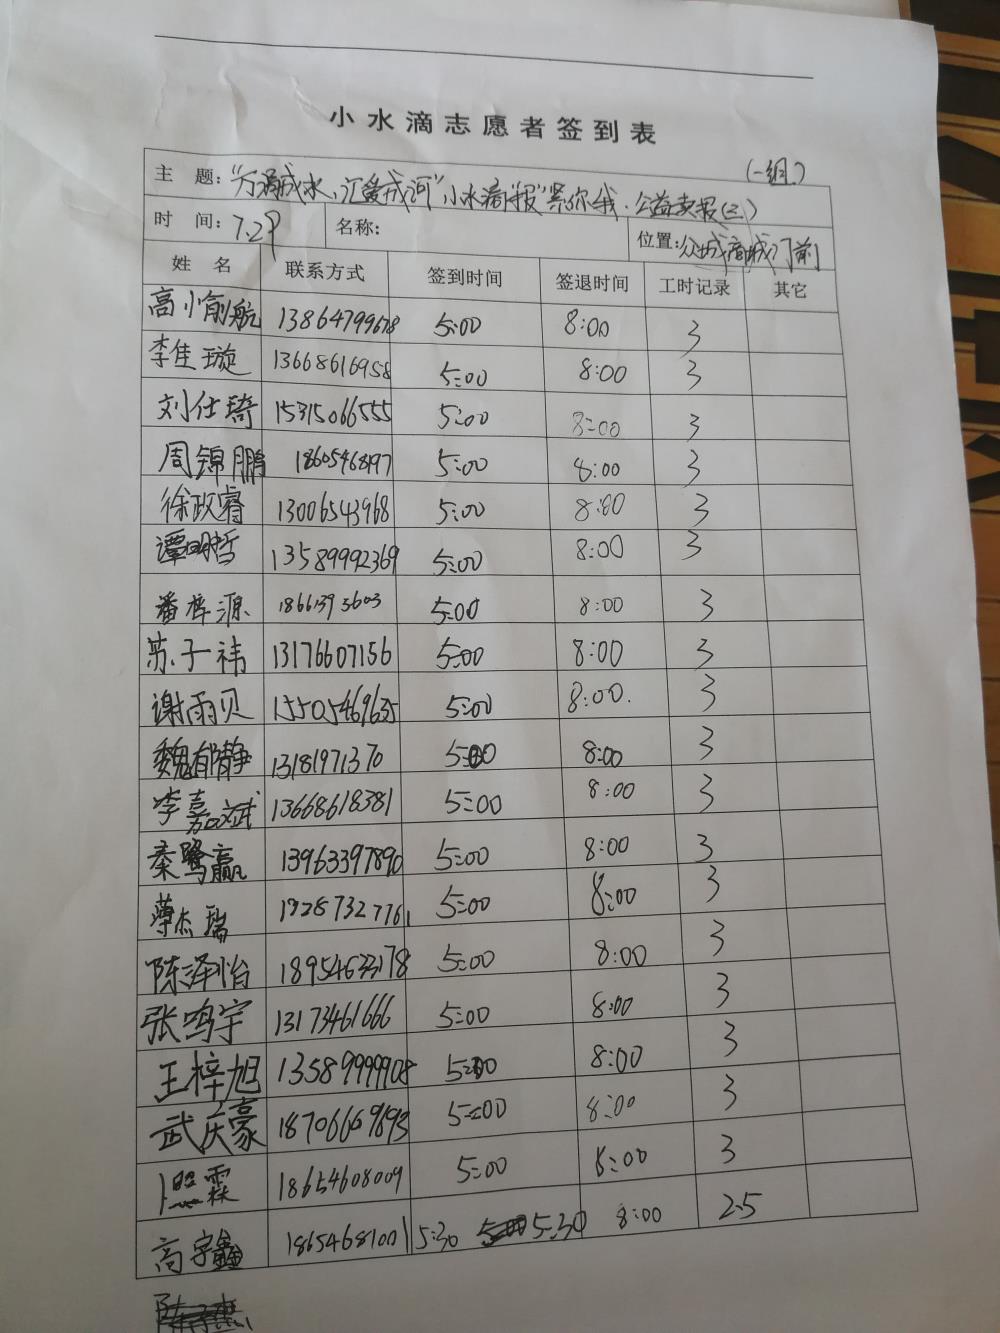 小水滴志愿者签到表
(一组)
主 题: "万滴成水、汇爱成河"小水滴"报"紧你我·公益卖报(三)
时 间: 7.29 名称: 位置: 众成商城门前
姓 名 联系方式 签到时间 签退时间 工时记录 其它
高小愉航 13864799678 5:00 8:00 3
李佳璇 13668616958 5:00 8:00 3
刘仕琦 15315066555 5:00 8:00 3
周锦鹏 18605468197 5:00 8:00 3
徐政睿 13006543968 5:00 8:00 3
谭明哲 13589992369 5:00 8:00 3
潘梓源 18661393603 5:00 8:00 3
苏子祎 13176607156 5:00 8:00 3
谢雨贝 15505469635 5:00 8:00 3
魏郁静 13181971370 5:00 8:00 3
李嘉斌 13668618381 5:00 8:00 3
秦鹭赢 13963397890 5:00 8:00 3
薄杰瑞 5:00 8:00 3
陈泽怡 18954633178 5:00 8:00 3
张鸣宇 13173461666 5:00 8:00 3
王梓旭 13589999908 5:00 8:00 3
武庆豪 18706669693 5:00 8:00 3
卜照霖 18654608009 5:00 8:00 3
高宇鑫 18654681001 5:30 5:30 8:00 2.5